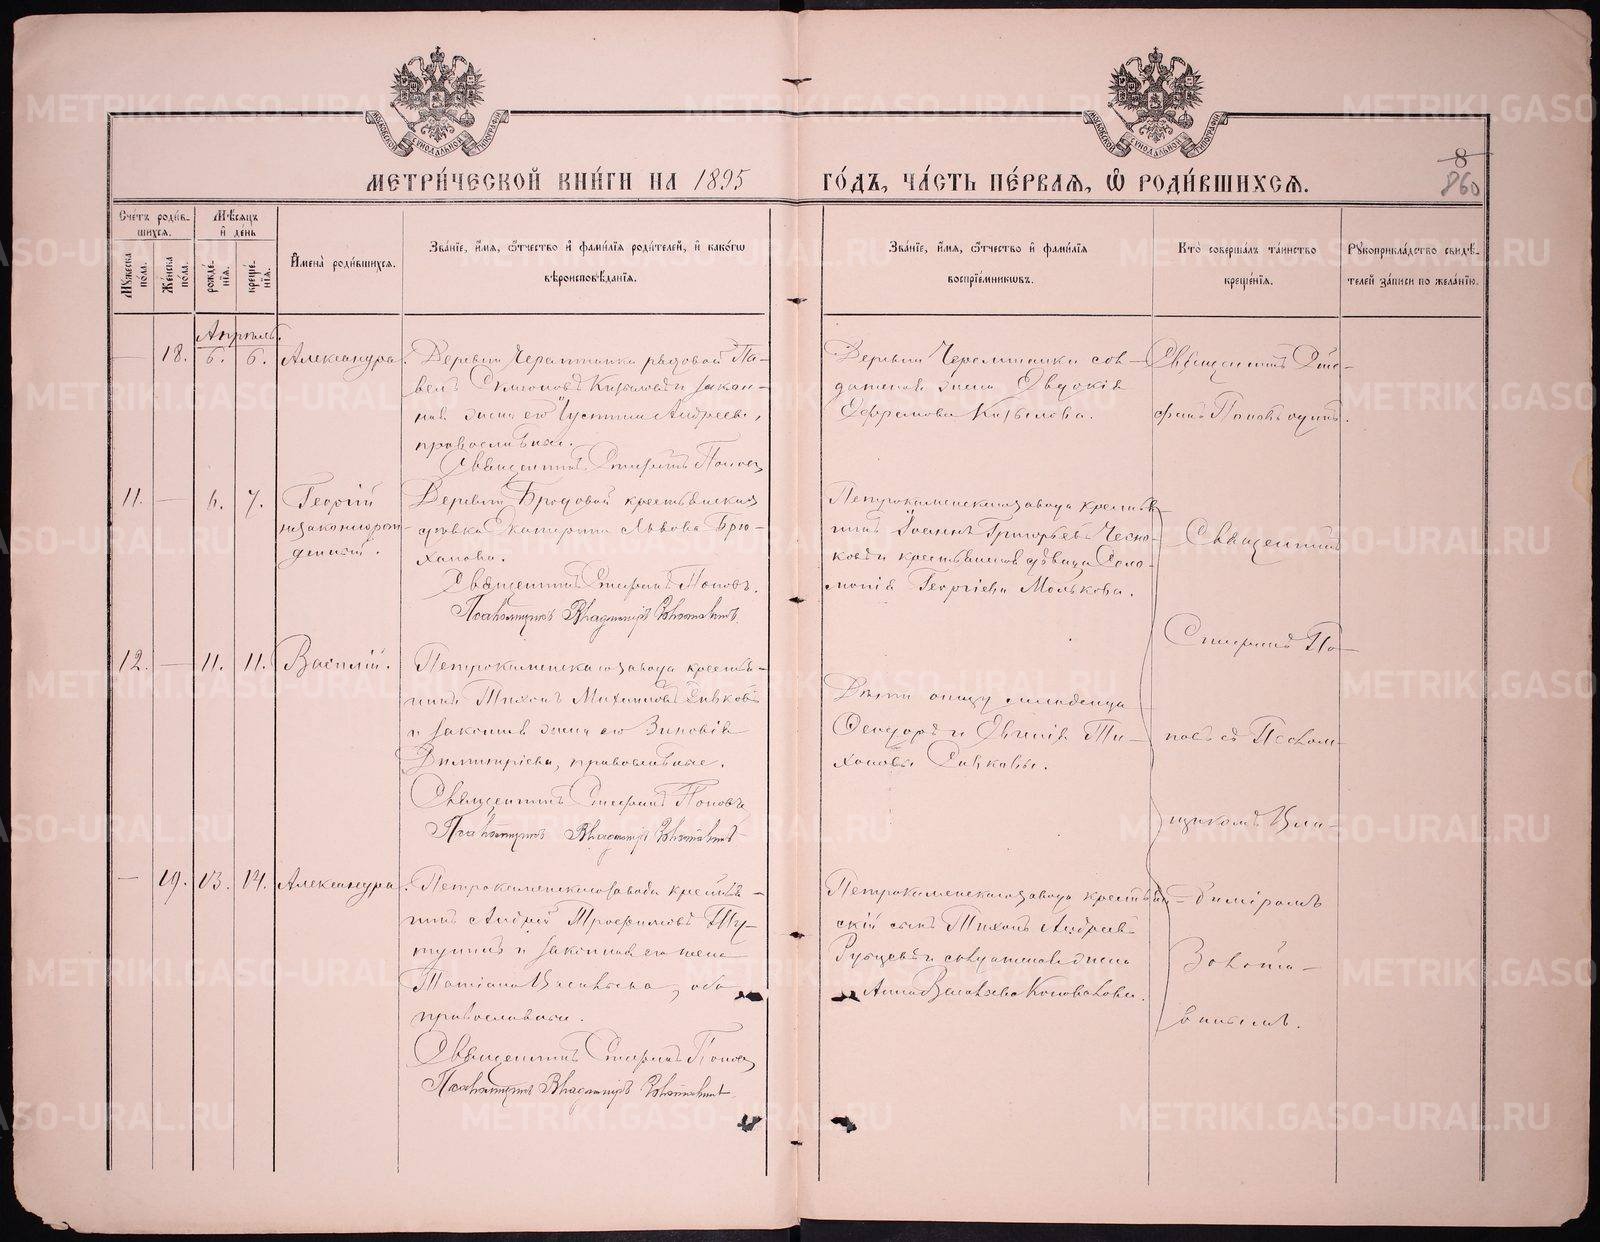 МЕТРИ́ЧЕСКОЙ КНИ́ГИ НА 1895
ГО́ДЪ, ЧА́СТЬ ПЕ́РВАЯ, Ѡ҆ РОДИ́ВШИХСЯ.
8
860
Сче́тъ роди́в-
шихся.
Мѣ́сяцъ
и҆ де́нь
Мꙋ́жеска по́ла.
Же́нска по́ла.
рожде́-
нїѧ.
креще́-
нїѧ.
И҆мена̀ роди́вшихся.
Зва́нїе, и҆́мѧ, ѻ҆́тчество и҆ фами́лїѧ роди́телей, и҆ како́гѡ
вѣроисповѣ́данїѧ.
Зва́нїе, и҆́мѧ, ѻ҆́тчество и҆ фами́лїѧ
воспрїе́мниковъ.
Кто̀ соверша́лъ та́инство
креще́нїѧ.
Рꙋкоприкла́дство свидѣ́-
телей за́писи по жела́нїю.
Апрѣль.
— 18. 6. 6. Александра.
Деревни Черемшанки рядовой Па-
велъ Симоновъ и закон-
ная жена его Іустина Андреева,
православные.
Священникъ Стефанъ Поповъ
Деревни Черемшанки сол-
датская жена Евдокія
Ефремова
Священникъ Сте-
фанъ Поповъ одинъ.
11. — 6. 7. Георгій
незаконнорож-
денный.
Деревни Бродовой крестьянская
дѣвка Екатерина Львова Брю-
ханова.
Священникъ Стефанъ Поповъ.
Псаломщикъ Владиміръ
Петрокаменскаго завода крестья-
нинъ Іоаннъ Григорьевъ Чесно-
ковъ и крестьянская дѣвица Соло-
монія Георгіева Молькова.
Священникъ
Стефанъ По-
повъ съ Псалом-
щикомъ Вла-
диміромъ
12. — 11. 11. Василій.
Петрокаменскаго завода крестья-
нинъ Тихонъ Михаиловъ
и законная жена его Зиновія
Димитріева, православные.
Священникъ Стефанъ Поповъ
Псаломщикъ Владиміръ
Дѣти отцу младенца
Ѳеодоръ и Евгенія Ти-
хоновы
— 19. 13. 14. Александра.
Петрокаменскаго завода крестья-
нинъ Андрей Трофимовъ
и законная его жена
Татіана Васильева, оба
православные.
Священникъ Стефанъ Поповъ
Псаломщикъ Владиміръ
Петрокаменскаго завода крестьян-
скій сынъ Тихонъ Андреевъ
и солдатская жена
Анна Васильева Коновалова.
METRIKI.GASO-URAL.RU